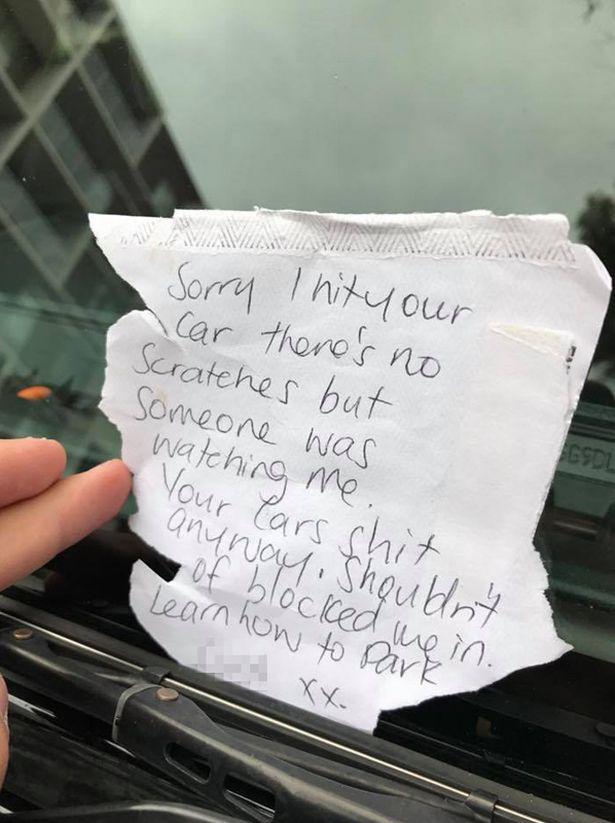 Sorry I hit your
car there's no
Scratches but
Someone was
watching me.
Your cars shit
anyway. Shouldn't
of blocked me in.
Learn how to Park
xx.